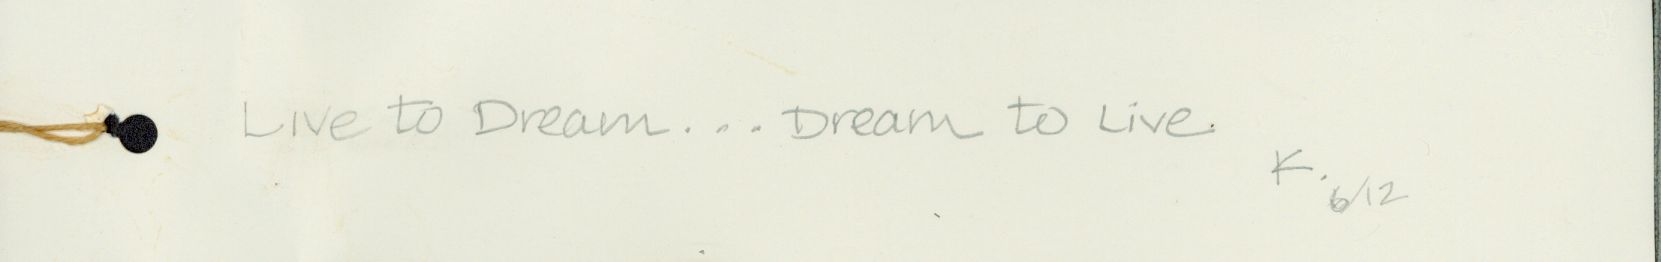 Live to Dream.... Dream to Live.
K.
6/12